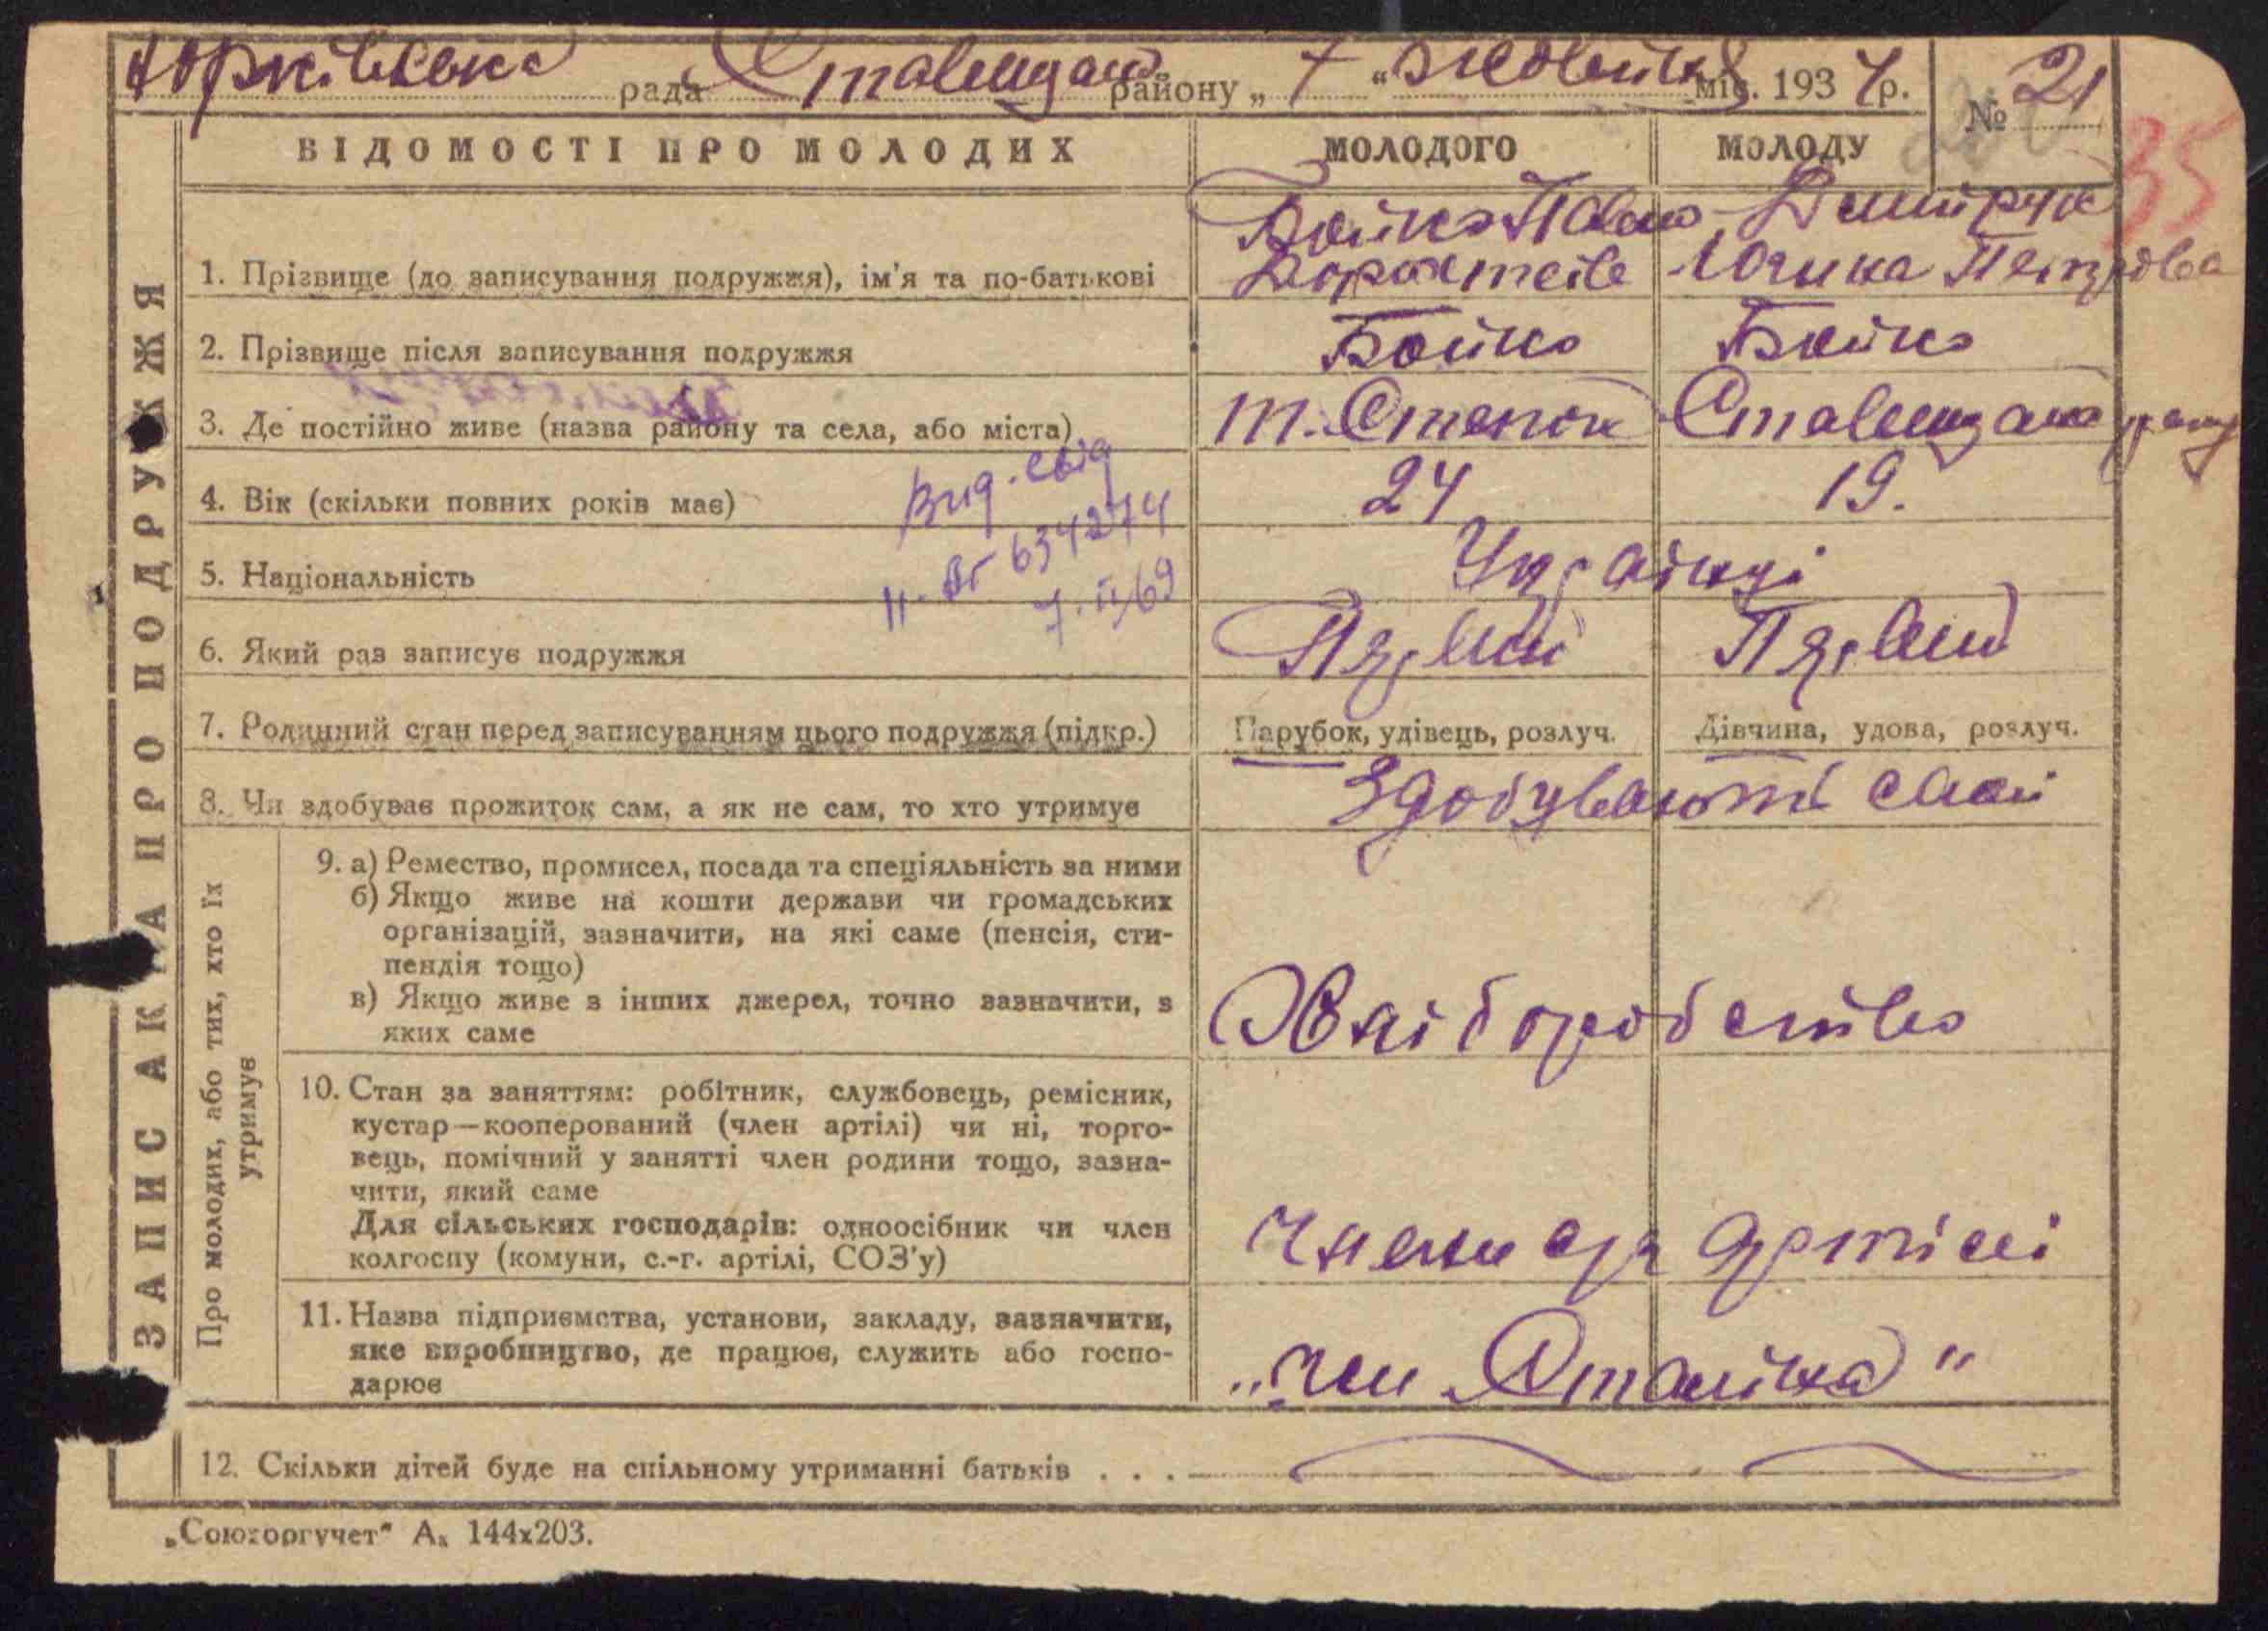 Юрківська рада Ставищан району „7“ жовтня міс. 1934 р. № 21
35
ВІДОМОСТІ ПРО МОЛОДИХ МОЛОДОГО МОЛОДУ
ЗАПИС АКТА ПРО ПОДРУЖЖЯ
1. Прізвище (до записування подружжя), ім'я та по-батькові Бойко Павло Дорофтеїв Дмитрук Петрова
2. Прізвище після записування подружжя Бойко Бойко
3. Де постійно живе (назва району та села, або міста) Степок Ставищан рану
4. Вік (скільки повних років має) 24 19.
Вид. свід
II-БГ 634274
7.II/69
5. Національність Українці
6. Який раз записує подружжя Первий Первий
7. Родинний стан перед записуванням цього подружжя (підкр.) Парубок, удівець, розлуч. Дівчина, удова, розлуч.
8. Чи здобуває прожиток сам, а як не сам, то хто утримує Здобувають самі
Про молодих, або тих, хто їх
утримує
9. а) Ремество, промисел, посада та спеціяльність за ними
б) Якщо живе на кошти держави чи громадських
організацій, зазначити, на які саме (пенсія, сти-
пендія тощо)
в) Якщо живе з інших джерел, точно зазначити, з
яких саме Хліборобство
10. Стан за заняттям: робітник, службовець, ремісник,
кустар—кооперований (член артілі) чи ні, торго-
вець, помічний у занятті член родини тощо, зазна-
чити, який саме
Для сільських господарів: одноосібник чи член
колгоспу (комуни, с.-г. артілі, СОЗ'у) Члени артілі
11. Назва підприємства, установи, закладу, зазначити,
яке виробництво, де працює, служить або госпо-
дарює „Ім Сталіна"
12. Скільки дітей буде на спільному утриманні батьків . . .
„Союзоргучет" А₅ 144х203.